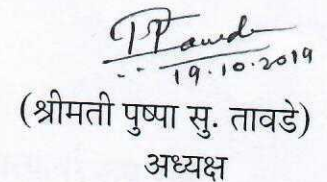 19.10.2019
(श्रीमती पुष्पा सु. तावडे)
अध्यक्ष